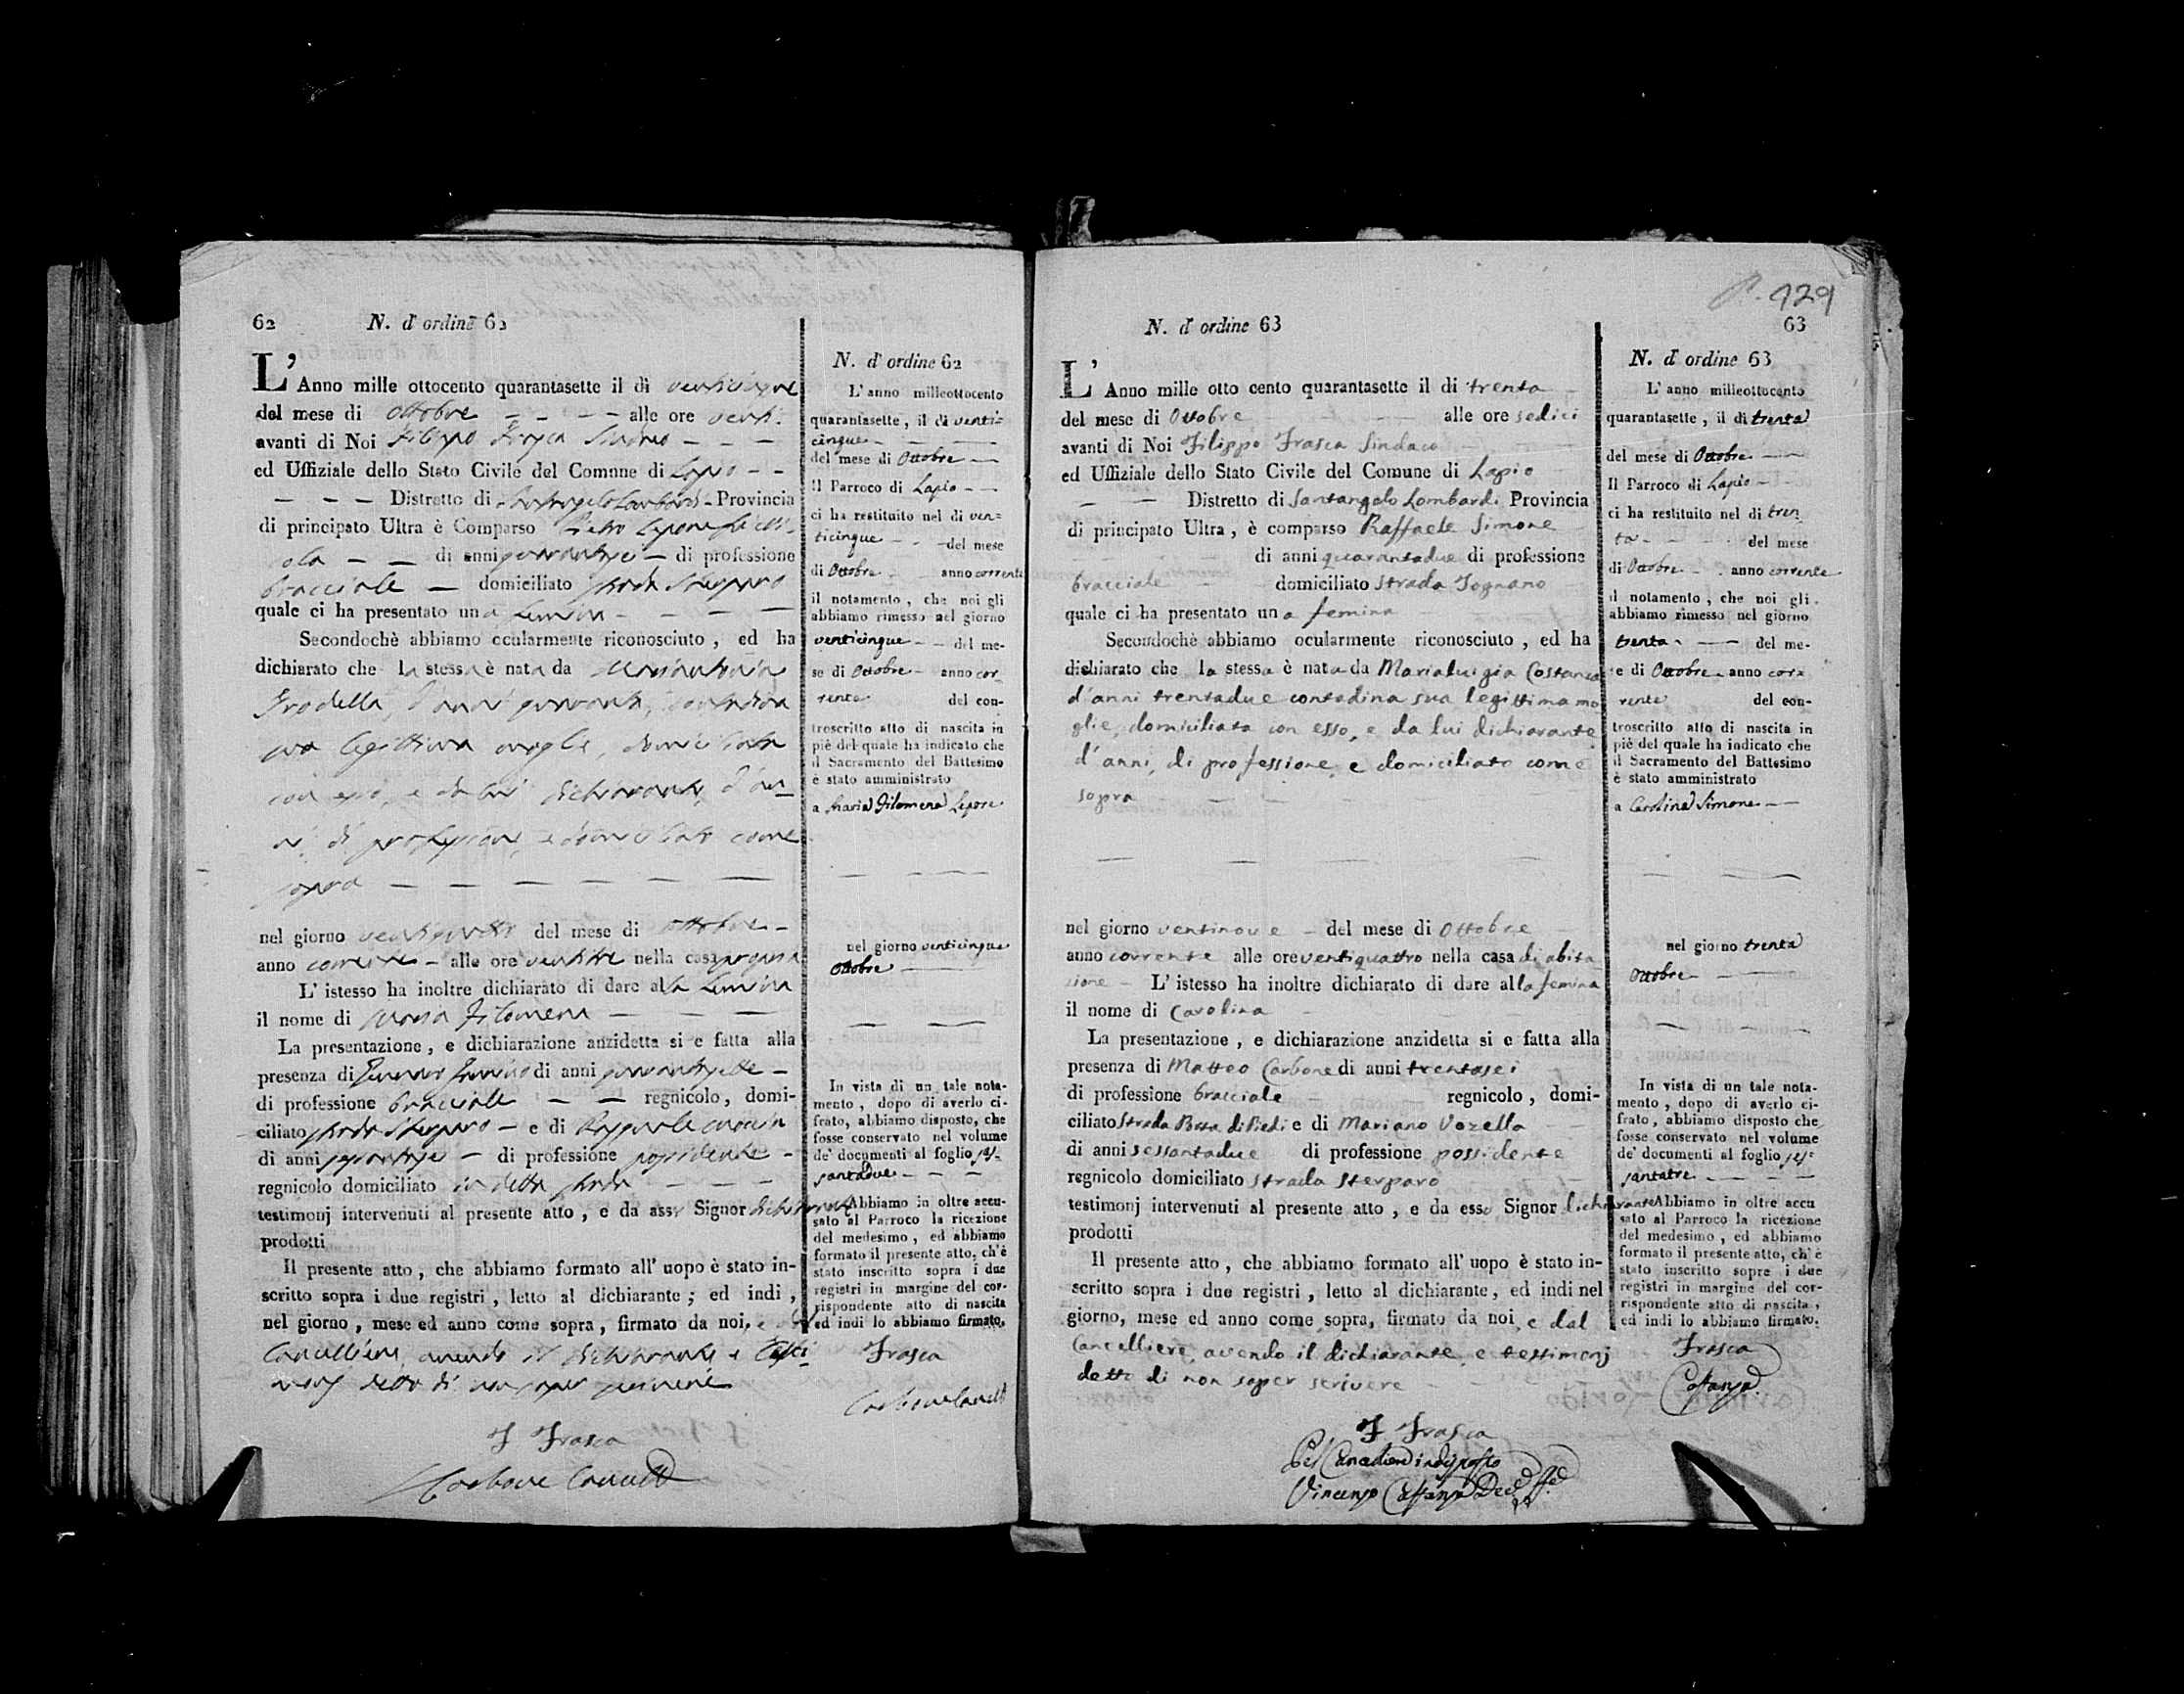 62 N. d' ordine 62
L' Anno mille ottocento quarantasette il di venticinque
del mese di Ottobre - - - - alle ore venti
avanti di Noi Filippo Frasca Sindaco - - -
ed Uffiziale dello Stato Civile del Comune di Lapio - -
- - - Distretto di Santangelo Lombardi - Provincia
di principato Ultra è Comparso Pietro Lepore fu
di anni quarantasei - di professione
bracciale - domiciliato Strada Sterparo
quale ci ha presentato una femina - - - -
Secondochè abbiamo ocularmente riconosciuto , ed ha
dichiarato che la stessa è nata da Mariantonia
d'anni quaranta, contadina
sua legittima moglie, domiciliata
con esso, e da lui dichiarante, d'an_
ni, di professione, e domiciliato come
sopra - - - - - -
nel giorno ventiquattro del mese di Ottobre -
anno corrente - alle ore ventitre nella casa propria
L' istesso ha inoltre dichiarato di dare alla femina
il nome di Maria Filomena - - -
La presentazione , e dichiarazione anzidetta si e fatta alla
presenza di di anni quarantasette -
di professione bracciale - - regnicolo, domi-
ciliato Strada Sterparo - e di Pasquale
di anni - di professione possidente -
regnicolo domiciliato in detta strada - - -
testimonj intervenuti al presente atto , e da esso Signor dichiarante
prodotti
Il presente atto , che abbiamo formato all' uopo è stato in-
scritto sopra i due registri , letto al dichiarante ; ed indi ,
nel giorno , mese ed anno come sopra , firmato da noi, e dal
Cancelliere, avendo il dichiarante e testi-
monj detto di non saper scrivere
F Frasca
Carbone Cancell
N. d' ordine 62
L' anno milleottocento
quarantasette , il di venti=
cinque - - -
del mese di Ottobre -
Il Parroco di Lapio - -
ci ha restituito nel di ven=
ticinque - - - del mese
di Ottobre - anno corrente
il notamento , che noi gli
abbiamo rimesso nel giorno
venticinque - - del me-
se di Ottobre - anno cor_
rente del con-
troscritto atto di nascita in
piè del quale ha indicato che
il Sacramento del Battesimo
è stato amministrato
a Maria Filomena Lepore
nel giorno venticinque
Ottobre -
In vista di un tale nota-
mento , dopo di averlo ci-
frato, abbiamo disposto, che
fosse conservato nel volume
de' documenti al foglio ses=
santadue - - -
Abbiamo in oltre accu-
sato al Parroco la ricezione
del medesimo , ed abbiamo
formato il presente atto, ch'è
stato inscritto sopra i due
registri in margine del cor-
rispondente atto di nascita
ed indi lo abbiamo firmato.
Frasca
Carbone Cancell
129
N. d' ordine 63 63
L' Anno mille otto cento quarantasette il di trenta
del mese di Ottobre alle ore sedici
avanti di Noi Filippo Frasca Sindaco
ed Uffiziale dello Stato Civile del Comune di Lapio
- - Distretto di Santangelo Lombardi Provincia
di principato Ultra , è comparso Raffaele Simone
di anni quarantadue di professione
bracciale domiciliato Strada Tognano
quale ci ha presentato una femina
Secondochè abbiamo ocularmente riconosciuto , ed ha
dichiarato che la stessa è nata da Marialuigia Costanza
d'anni trentadue contadina sua legittima mo
glie, domiciliata con esso, e da lui dichiarante
d'anni, di professione, e domiciliato come
sopra - - -
nel giorno ventinove - del mese di Ottobre
anno corrente alle ore ventiquattro nella casa di abita
zione - L' istesso ha inoltre dichiarato di dare alla femina
il nome di Carolina
La presentazione , e dichiarazione anzidetta si e fatta alla
presenza di Matteo Carbone di anni trentasei
di professione bracciale regnicolo , domi-
ciliato Strada di Piedi e di Mariano Vozella
di anni sessantadue di professione possidente
regnicolo domiciliato Strada Sterparo
testimonj intervenuti al presente atto , e da esso Signor dichiarante
prodotti
Il presente atto , che abbiamo formato all' uopo è stato in-
scritto sopra i due registri , letto al dichiarante, ed indi nel
giorno, mese ed anno come sopra, firmato da noi, e dal
Cancelliere, avendo il dichiarante, e testimonj
detto di non saper scrivere
F Frasca
Pel Cancelliere indisposto
Vincenzo Costanza
N. d' ordine 63
L' anno milleottocento
quarantasette , il di trenta
del mese di Ottobre -
Il Parroco di Lapio - -
ci ha restituito nel di tren_
ta - - - del mese
di Ottobre - . anno corrente
il notamento , che noi gli
abbiamo rimesso nel giorno
trenta - - del me-
se di Ottobre - anno cor=
rente del con-
troscritto atto di nascita in
piè del quale ha indicato che
il Sacramento del Battesimo
è stato amministrato
a Carolina Simone - -
nel giorno trenta
Ottobre -
In vista di un tale nota-
mento , dopo di averlo ci-
frato , abbiamo disposto che
fosse conservato nel volume
de' documenti al foglio ses=
santatre - - -
Abbiamo in oltre accu
sato al Parroco la ricezione
del medesimo , ed abbiamo
formato il presente atto, ch'è
stato inscritto sopra i due
registri in margine del cor-
rispondente atto di nascita ,
ed indi lo abbiamo firmato.
Frasca
Costanza